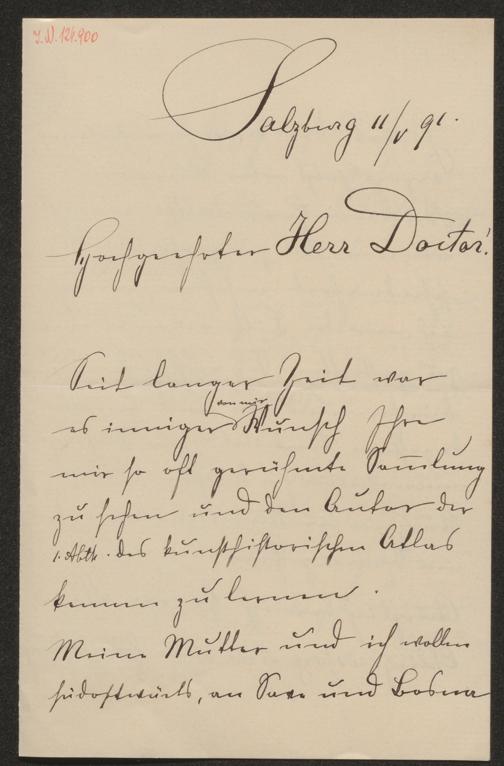 J.N. 124.900
Salzburg 11/V 91.
Hochgeehrter Herr Doctor!
Seit langer Zeit war
von mir
es inniger Wunsch Ihre
mir so oft gerühmte Sam̅lung
zu sehen und den Autor der
1. Abth. des kunsthistorischen Atlas
kennen zu lernen.
Meine Mutter und ich wollen
südostwärts, an Save und Bosna